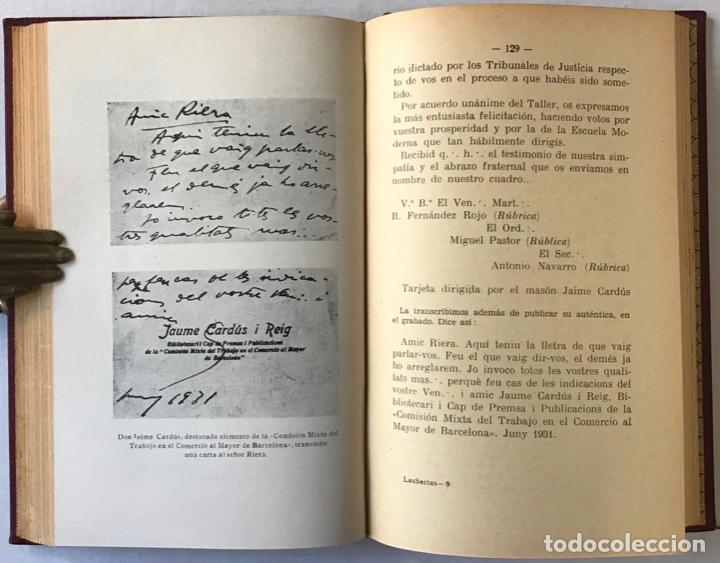 Amic Riera
Aquí teniu la lle-
tra de que vaig parlar-vos
Feu el que vaig dir-
vos, el demés ja ho arre-
glarem.
Jo invoco totes les vos-
tres qualitats mas∴
perquè feu cas de les indica-
cions del vostre Ven∴ i
amic
Jaume Cardús i Reig
Bibliotecari i Cap de Premsa i Publicacions
de la "Comisión Mixta del Trabajo en el Comercio al Mayor
de Barcelona"
Juny 1931
Don Jaime Cardús, destacado elemento de la «Comisión Mixta del
Trabajo en el Comercio al Mayor de Barcelona», transmite
una carta al señor Riera.
— 129 —
rio dictado por los Tribunales de Justicia respec-
to de vos en el proceso a que habéis sido some-
tido.
Por acuerdo unánime del Taller, os expresamos
la más entusiasta felicitación, haciendo votos por
vuestra prosperidad y por la de la Escuela Mo-
derna que tan hábilmente dirigís.
Recibid q.∴ h.∴ el testimonio de nuestra sim-
patía y el abrazo fraternal que os enviamos en
nombre de nuestro cuadro...
V.º B.º El Ven.∴ Mart.∴
R. Fernández Rojo (Rúbrica)
El Ord.∴
Miguel Pastor (Rública)
El Sec.∴
Antonio Navarro (Rúbrica)
Tarjeta dirigida por el masón Jaime Cardús
La transcribimos además de publicar su auténtica, en
el grabado. Dice así:
Amic Riera. Aquí teniu la lletra de que vaig
parlar-vos. Feu el que vaig dir-vos, el demés ja
ho arreglarem. Jo invoco totes les vostres quali-
tats mas.∴ perquè feu cas de les indicacions del
vostre Ven.∴ i amic Jaume Cardús i Reig, Bi-
bliotecari i Cap de Premsa i Publicacions de la
«Comisión Mixta del Trabajo en el Comercio al
Mayor de Barcelona». Juny 1931.
LasSectas—9
todocoleccion.net